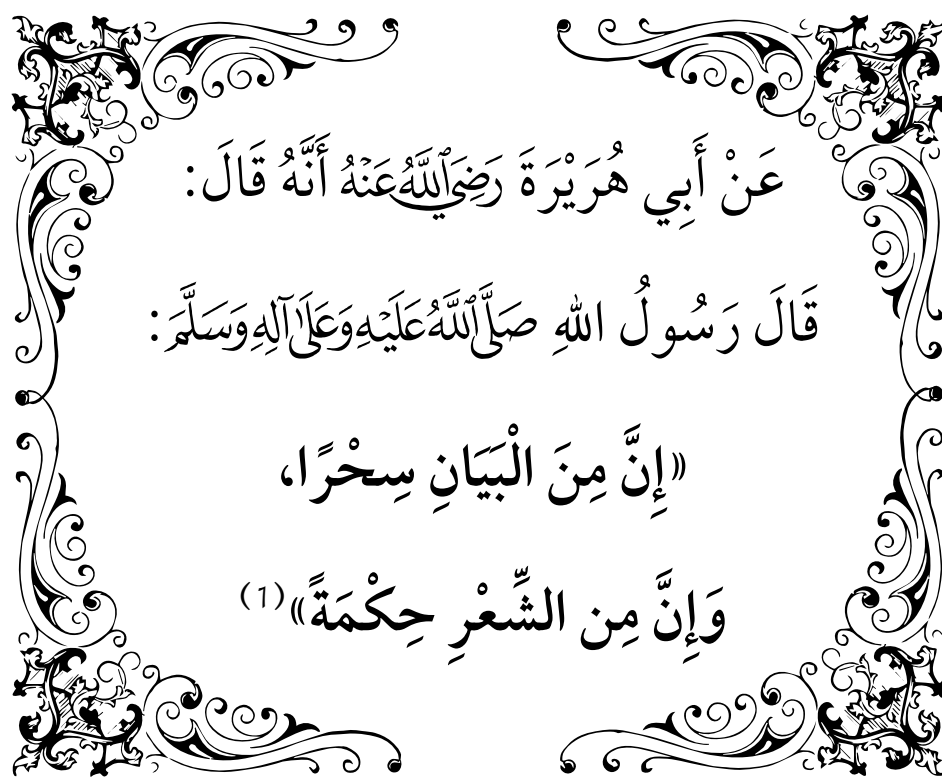 عَنْ أَبِي هُرَيْرَةَ رَضِيَ اللَّهُ عَنْهُ أَنَّهُ قَالَ:
قَالَ رَسُولُ اللهِ صَلَّى اللَّهُ عَلَيْهِ وَعَلَىٰ آلِهِ وَسَلَّمَ:
«إِنَّ مِنَ الْبَيَانِ سِحْرًا،
وَإِنَّ مِن الشِّعْرِ حِكْمَةً» (1)